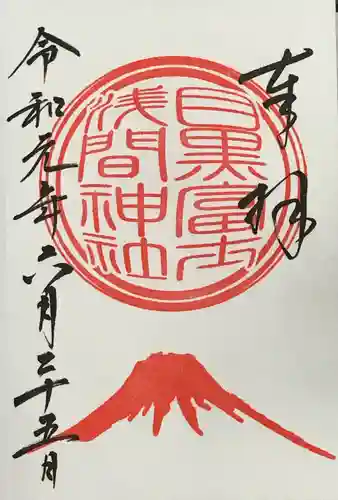 奉拝
目黒富士
浅間神社
令和元年六月二十五日